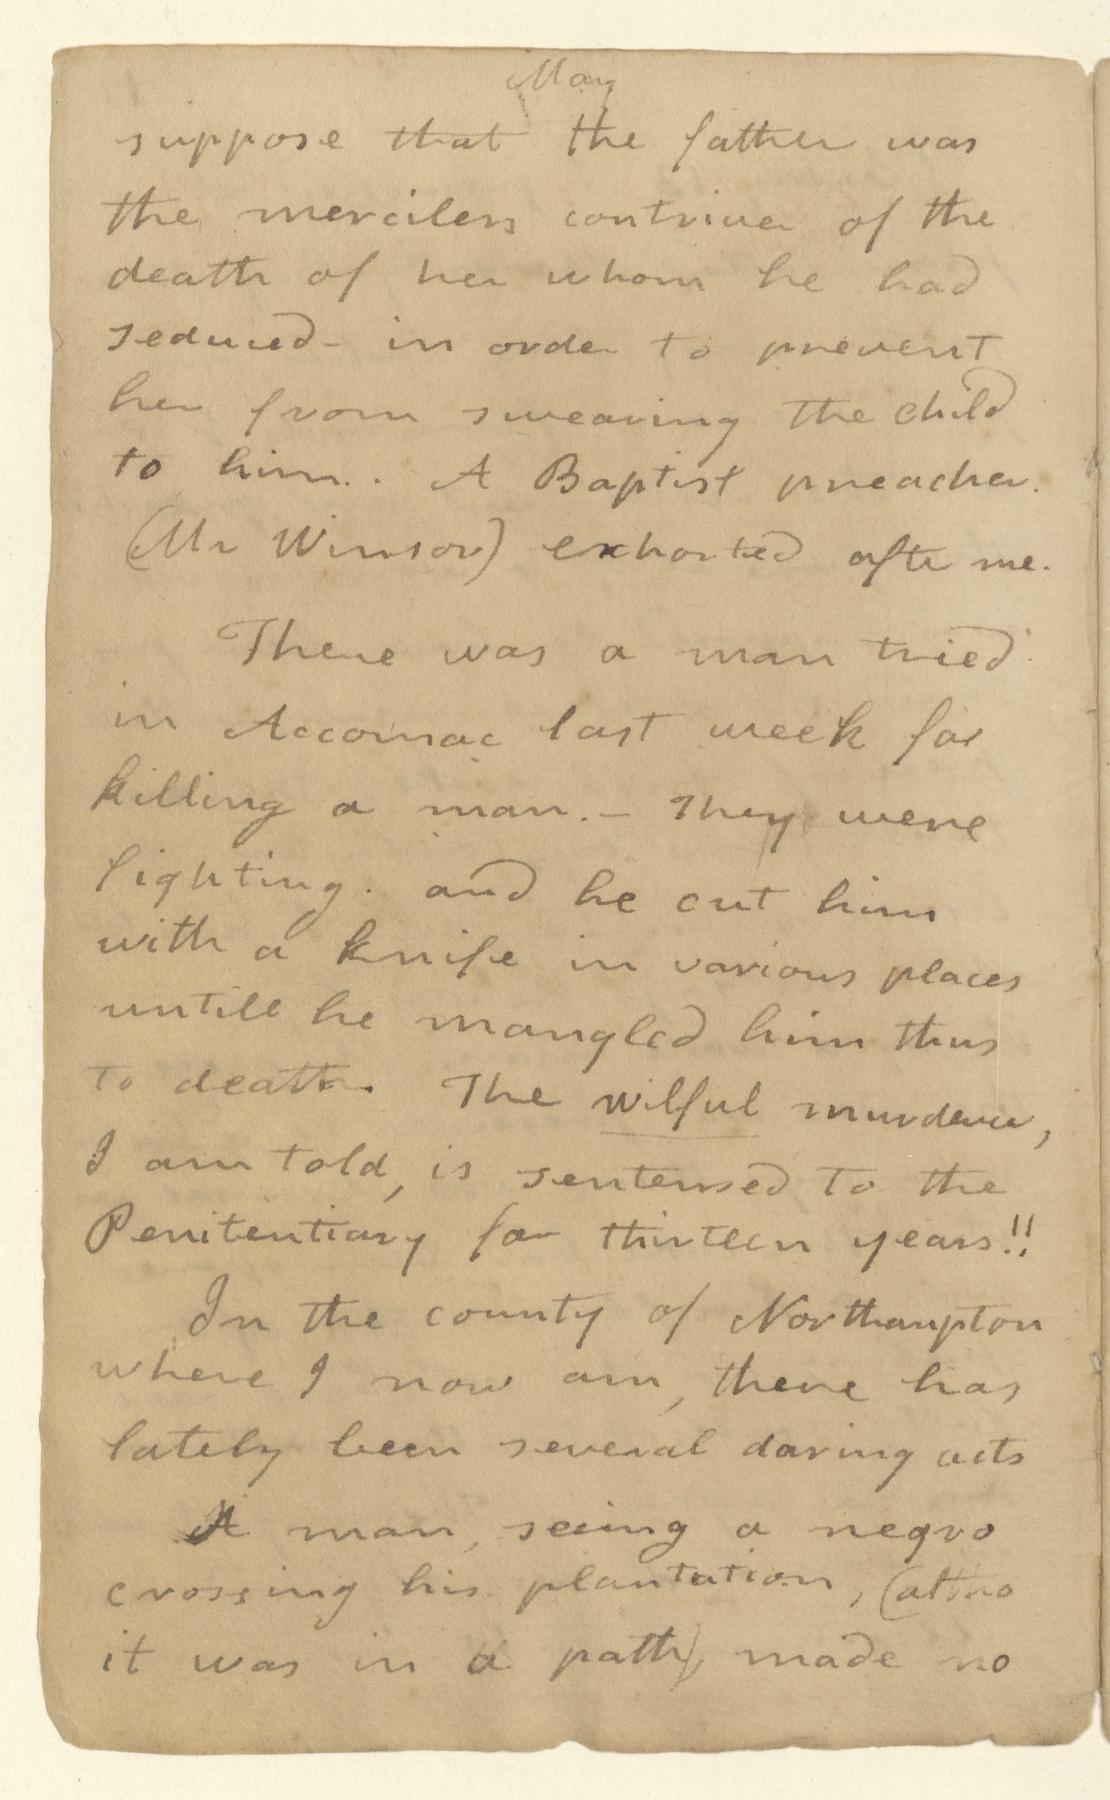 May
suppose that the father was
the merciless contriver of the
death of her whom he had
seduced - in order to prevent
her from swearing the child
to him.. A Baptist preacher.
(Mr Winsor) exhorted after me.
There was a man tried
in Accomac last week for
killing a man. - They were
fighting. and he cut him
with a knife in various places
untill he mangled him thus
to death. The wilful murderer,
I am told, is sentensed to the
Penitentiary for thirteen years!!
In the county of Northampton
where I now am, there has
lately been several daring acts
A man, seeing a negro
crossing his plantation, (altho
it was in a path), made no